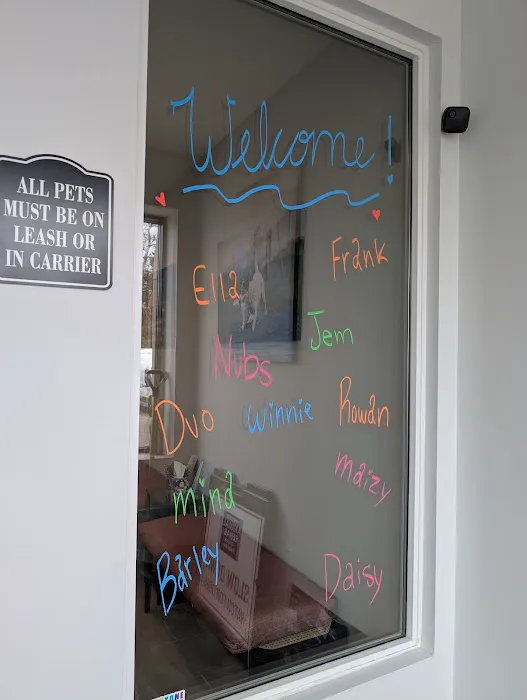 Welcome!
ALL PETS
MUST BE ON
LEASH OR
IN CARRIER
Ella
Frank
Jem
Nubs
Duo
Winnie
Rowan
maizy
mind
Barley
Daisy